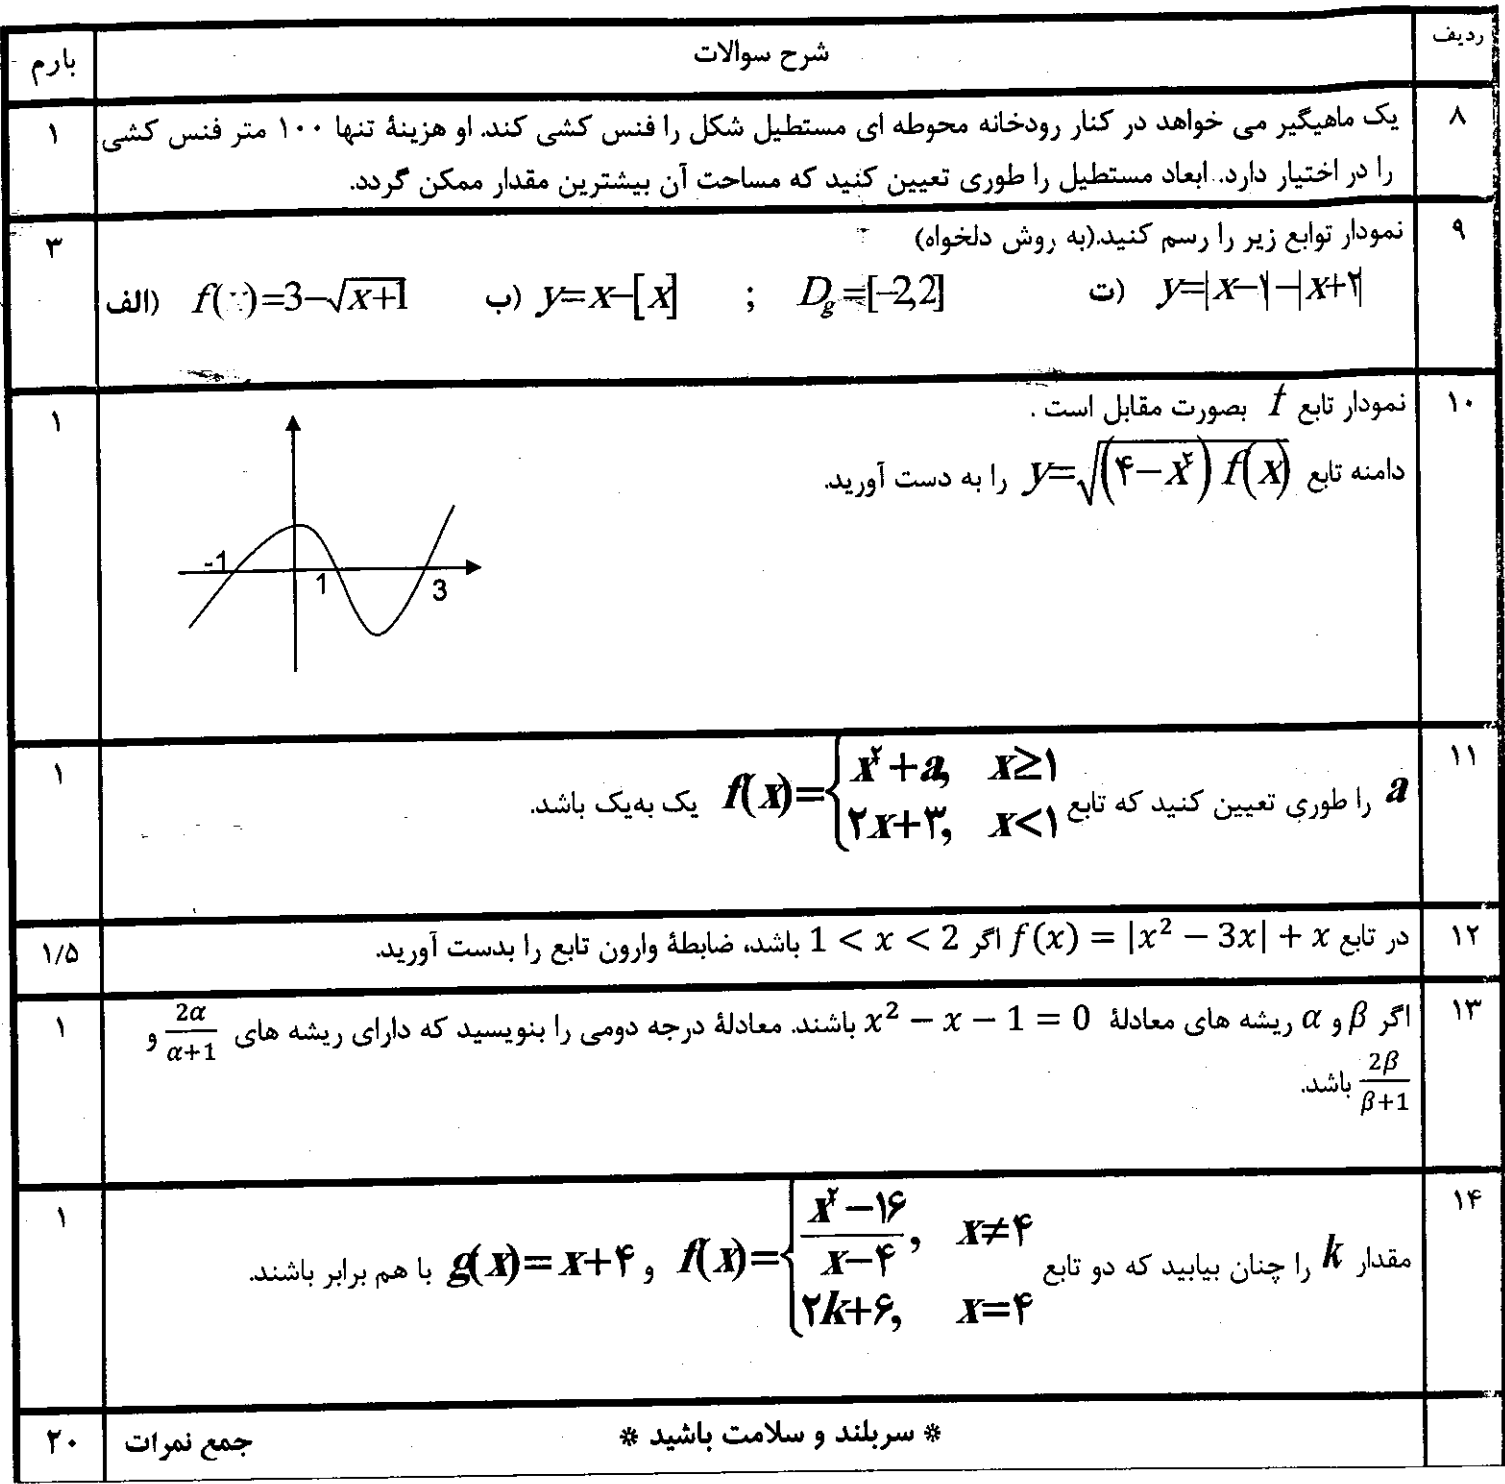 ردیف
شرح سوالات
بارم
۸
یک ماهیگیر می خواهد در کنار رودخانه محوطه ای مستطیل شکل را فنس کشی کند. او هزینهٔ تنها ۱۰۰ متر فنس کشی
۱
را در اختیار دارد. ابعاد مستطیل را طوری تعیین کنید که مساحت آن بیشترین مقدار ممکن گردد.
۹
نمودار توابع زیر را رسم کنید.(به روش دلخواه)
۳
الف) f( )=3-√(x+1)   ب) y=x-[x] ; D_g=[-2,2]   ت) y=|x-۱|-|x+۲|
۱۰
نمودار تابع f بصورت مقابل است .
۱
دامنه تابع y=√((۴-x²) f(x)) را به دست آورید.
-1
1
3
۱۱
a را طوری تعیین کنید که تابع f(x)={x²+a, x≥۱
۲x+۳, x<۱ یک به‌یک باشد.
۱
۱۲
در تابع f(x) = |x² − 3x| + x اگر 1 < x < 2 باشد، ضابطهٔ وارون تابع را بدست آورید.
۱/۵
۱۳
اگر β و α ریشه های معادلهٔ x² − x − 1 = 0 باشند. معادلهٔ درجه دومی را بنویسید که دارای ریشه های 2α/(α+1) و
۱
2β/(β+1) باشد.
۱۴
مقدار k را چنان بیابید که دو تابع f(x)={(x²-۱۶)/(x-۴), x≠۴
۲k+۶, x=۴ و g(x)=x+۴ با هم برابر باشند.
۱
* سربلند و سلامت باشید *
جمع نمرات
۲۰